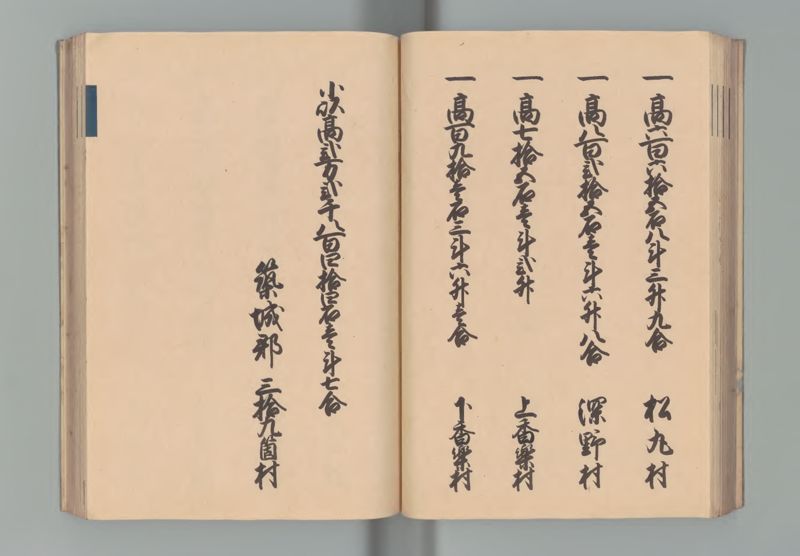 一 高六百六拾五石八斗三升九合 松丸村
一 高八百弐拾五石壱斗六升八合 深野村
一 高七拾五石壱斗弐升 上香楽村
一 高百九拾壱石三斗六升壱合 下香楽村
小以高弐万弐千八百四拾四石壱斗七合
築城郡 三拾九箇村